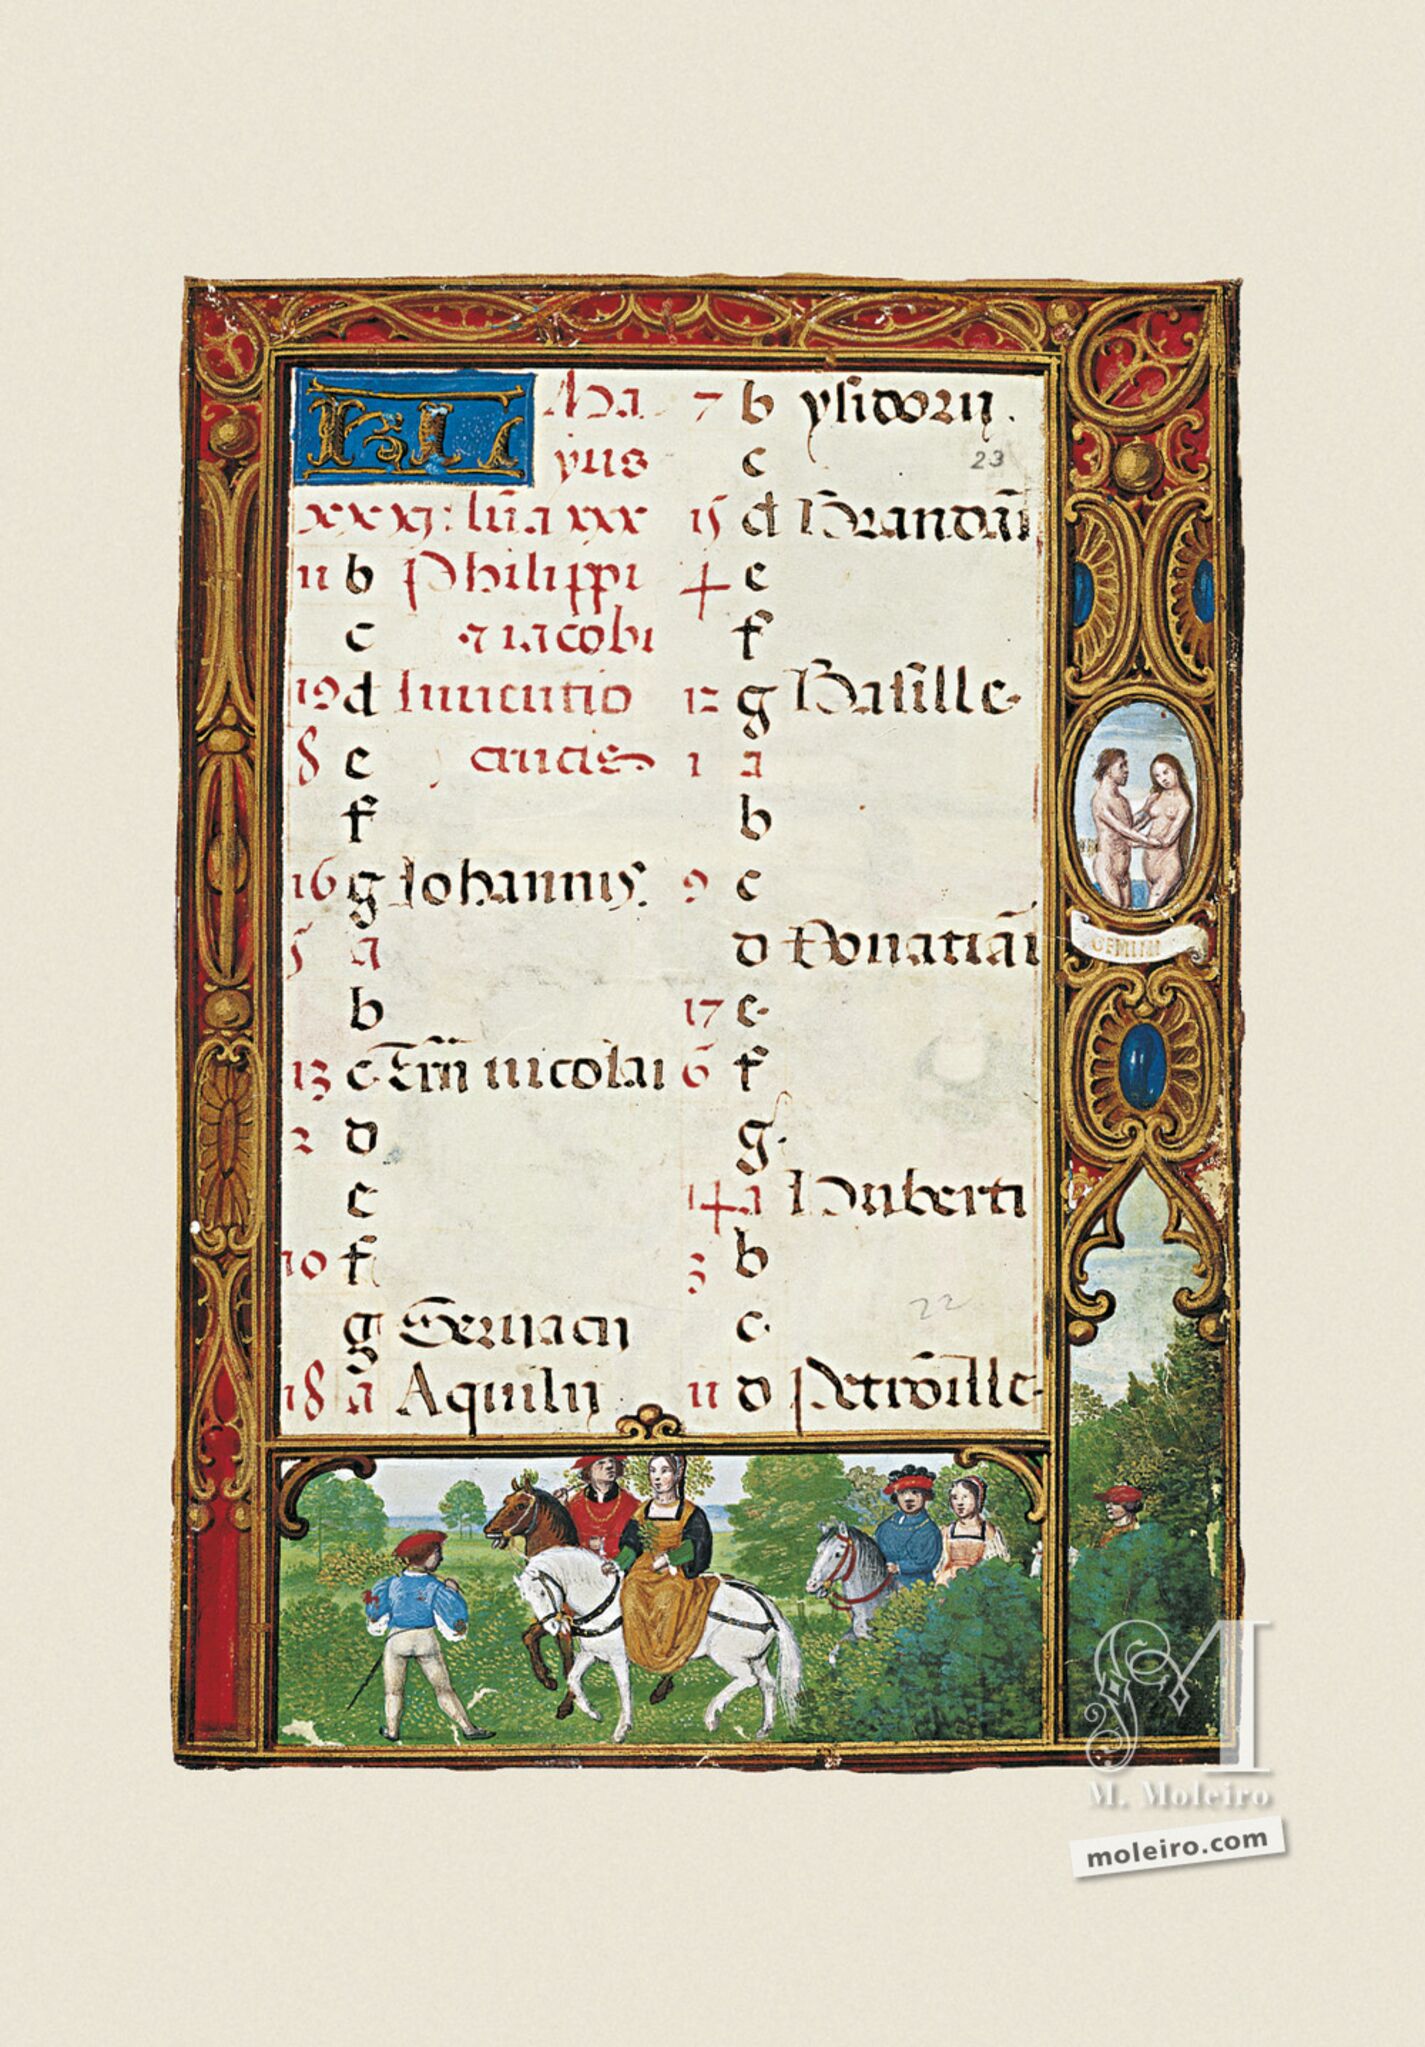 KL Ma
yus
xxxj: lūa xxx
11 b Philippi
c ⁊ iacobi
19 d Inuentio
8 e crucis
f
16 g Iohannis.
5 a
b
13 c Trn̄ nicolai
2 d
e
10 f
g Seruacij
18 a Aquilij
7 b ysidorij.
c
23
15 d Brandāi
+ e
f
12 g Basille
1 a
b
9 c
d Donatiāi
17 e
6 f
g
14 a Huberti
3 b
22
c
11 d Petrōille
GEMINI
M
M. Moleiro
moleiro.com